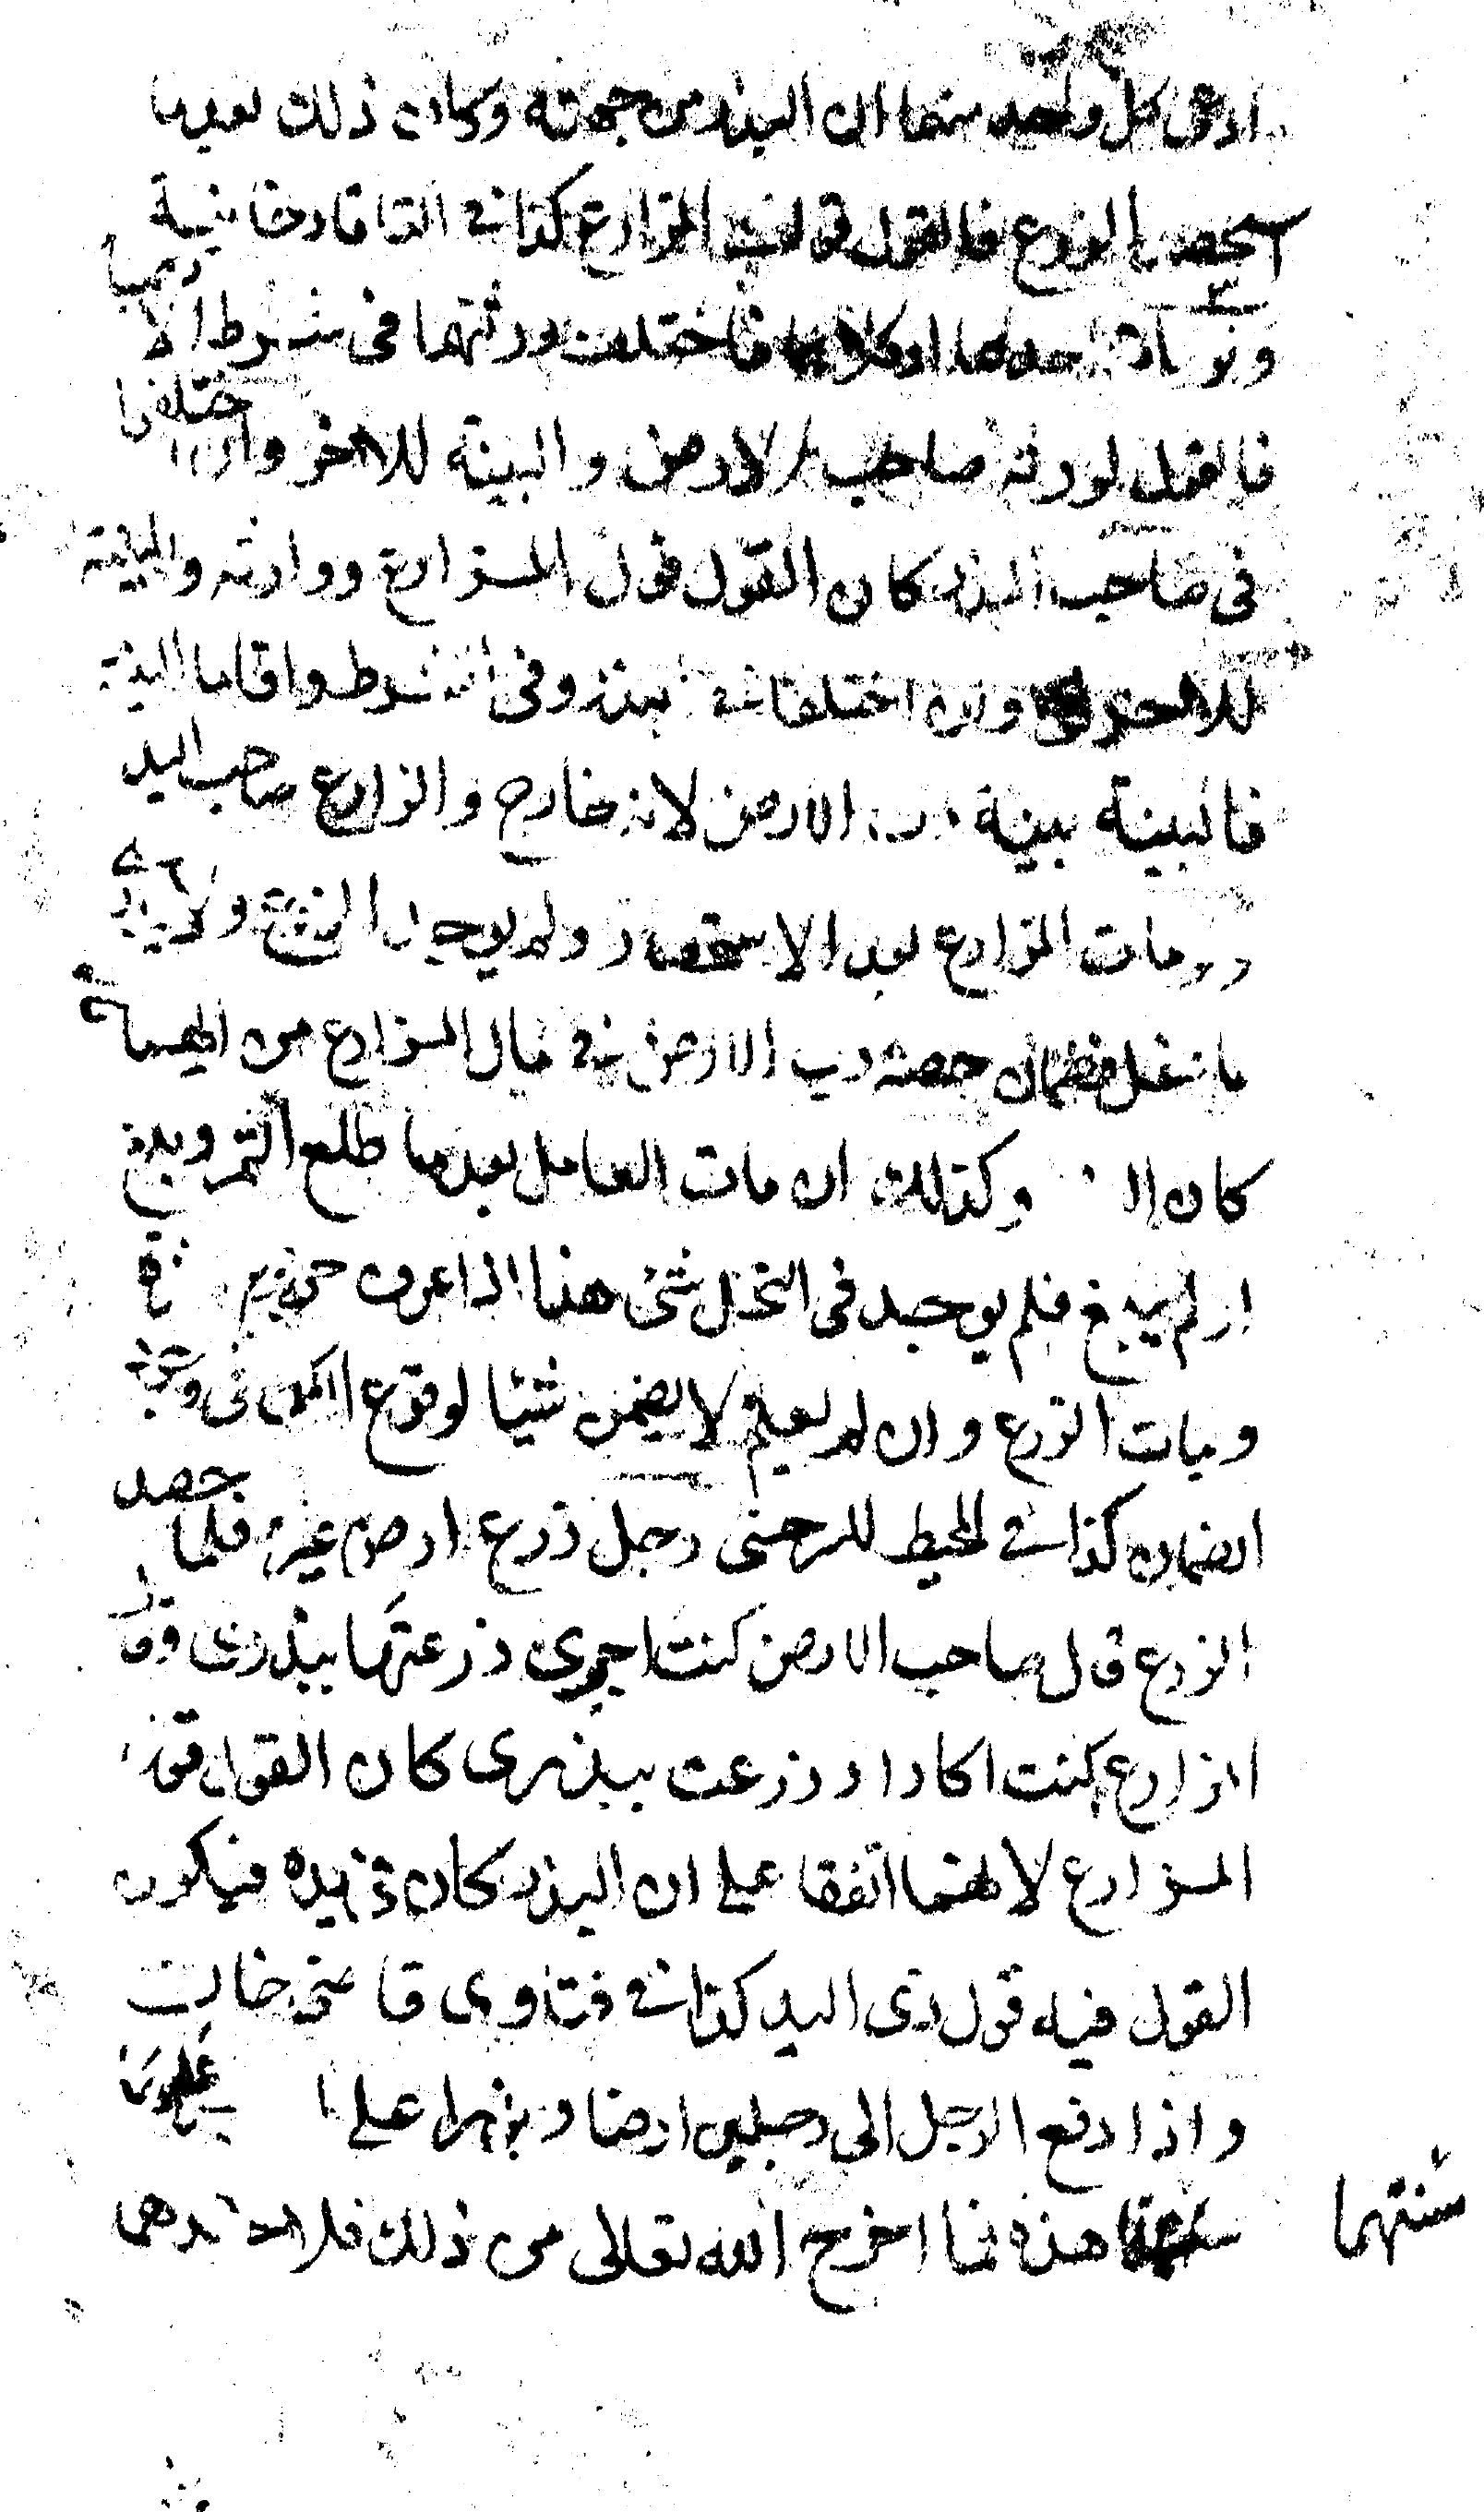 ادعى كل واحد منهما ان البذر من جهته وكان ذلك بعد ما
استحصد الزرع فالقول قول المزارع كذا في التاتارخانية
ولو مات احدهما او كلاهما فاختلف ورثتهما في شرط الانصبا
فالقول لورثة صاحب الارض والبينة للاخر وان اختلفا
في صاحب البذر كان القول قول المزارع ووارثه والبينة
للاخر وان اختلفا في البذر وفي الشرط واقاما البينة
فالبينة بينة رب الارض لانه خارج والزارع صاحب اليد
ولو مات المزارع بعد الاستحصاد ولم يوجد الزرع ولا يدرى
ما فعل فضمان حصة رب الارض في مال المزارع من ايهما
كان وكذلك ان مات العامل بعد ما طلع الثمر وبلغ
او لم يبلغ فلم يوجد في النخل شئ هذا اذا عرف خروج
ونبات الزرع وان لم يعلم لا يضمن شيئا لوقوع الشك في وجوب
الضمان كذا في المحيط للسرخسي رجل زرع ارض غيره فلما حصد
الزرع قال صاحب الارض كنت اجيري زرعتها ببذري وقال
المزارع كنت اكارا وزرعت ببذري كان القول قول
المزارع لانهما اتفقا على ان البذر كان في يده فيكون
القول فيه قول ذي اليد كذا في فتاوى قاضي خان
واذا دفع الرجل الى رجلين ارضا وبذرا على ان
هذه فما اخرج الله تعالى من ذلك فلاحدهما
سنتهما